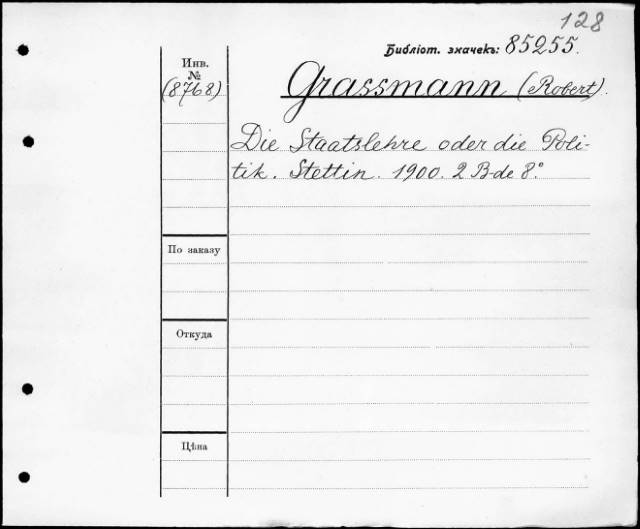 128
Библіот. значекъ: 85255.
Инв.
№
(8768)
Grassmann (Robert).
Die Staatslehre oder die Poli-
tik. Stettin. 1900. 2 B-de 8°.
По заказу
Откуда
Цѣна